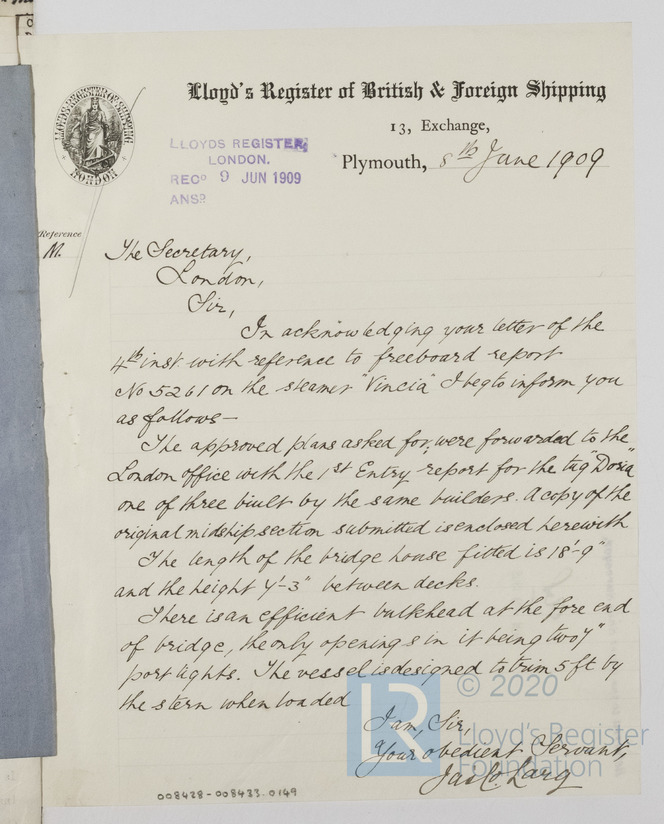 Lloyd's Register of British & Foreign Shipping
13, Exchange,
Plymouth, 8th June 1909
LLOYDS REGISTER
LONDON.
RECD 9 JUN 1909
ANSD
LLOYD'S REGISTER OF SHIPPING
LONDON
Reference
M.
The Secretary,
London,
Sir,
In acknowledging your letter of the
4th inst. with reference to freeboard report
No 5261 on the steamer "Vincia" I beg to inform you
as follows—
The approved plans asked for, were forwarded to the
London office with the 1st Entry report for the tug "Doria"
one of three built by the same builders. A copy of the
original midship section submitted is enclosed herewith
The length of the bridge house fitted is 18'-9"
and the height 7'-3" between decks.
There is an efficient bulkhead at the fore end
of bridge, the only openings in it being two 7"
port lights. The vessel is designed to trim 5 ft by
the stern when loaded
I am, Sir,
Your obedient Servant,
Larg
008428-008433.0149
LR
© 2020
Lloyd's Register
Foundation